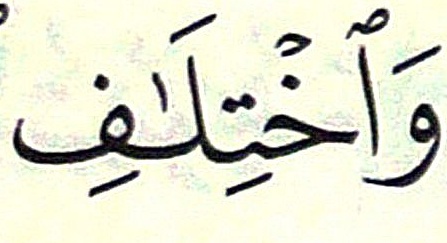 وَٱخْتِلَـٰفِ